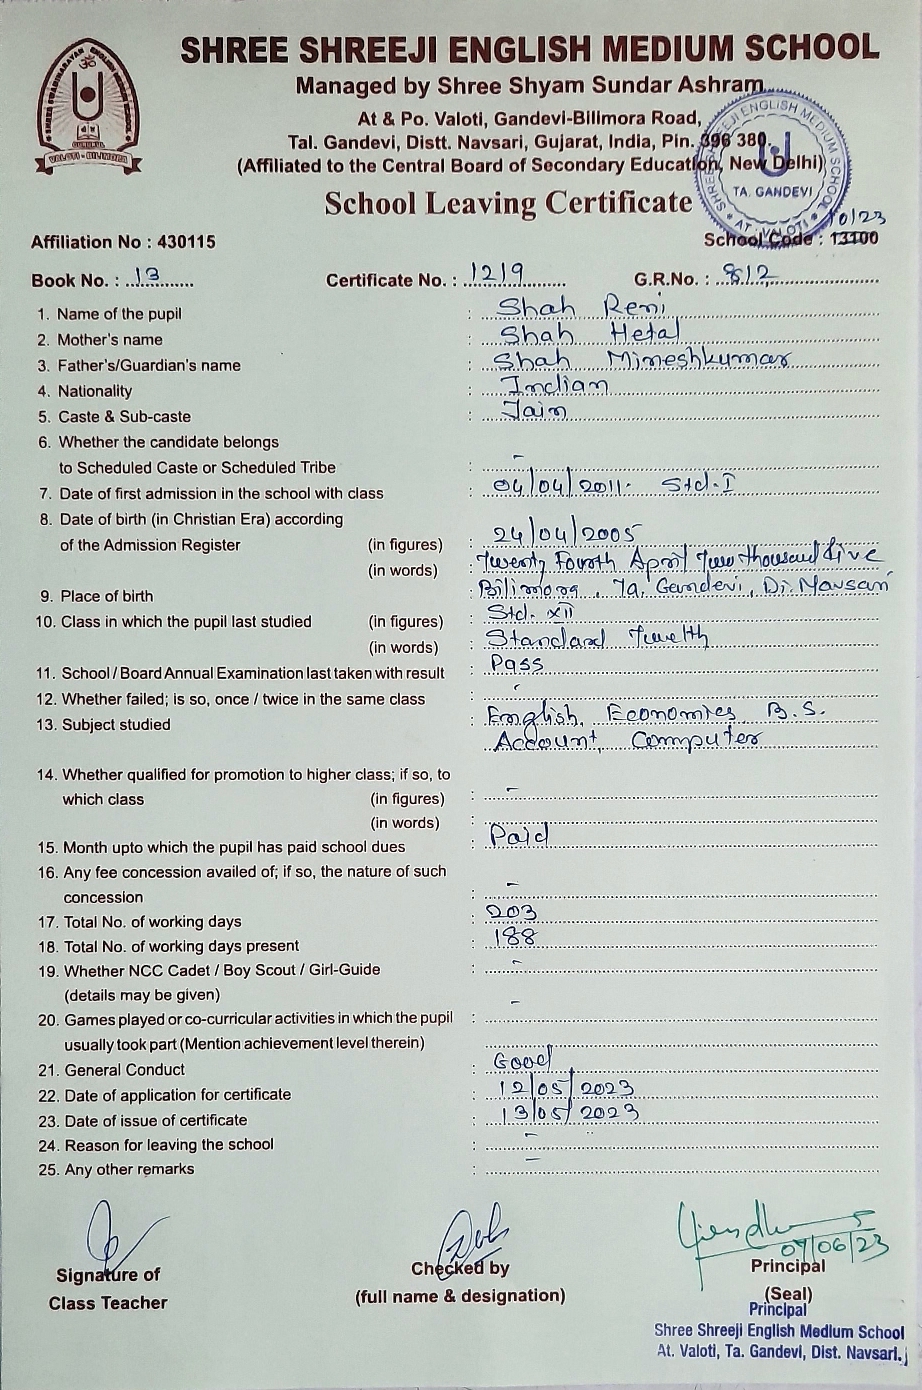 SHREE SHREEJI ENGLISH MEDIUM SCHOOL
Managed by Shree Shyam Sundar Ashram
At & Po. Valoti, Gandevi-Bilimora Road,
Tal. Gandevi, Distt. Navsari, Gujarat, India, Pin. 396 380.
(Affiliated to the Central Board of Secondary Education, New Delhi)
VALOTI - BILIMORA
TA. GANDEVI
School Leaving Certificate
10/23
Affiliation No : 430115 School Code : 13100
Book No. : 13 Certificate No. : 1219 G.R.No. : 812
1. Name of the pupil : Shah Reni
2. Mother's name : Shah Hetal
3. Father's/Guardian's name : Shah Mineshkumar
4. Nationality : Indian
5. Caste & Sub-caste : Jain
6. Whether the candidate belongs
to Scheduled Caste or Scheduled Tribe : -
7. Date of first admission in the school with class : 04/04/2011. Std.I
8. Date of birth (in Christian Era) according
of the Admission Register (in figures) : 24/04/2005
(in words) : Twenty Fourth April Two thousand five
9. Place of birth : Bilimora, Ta. Gandevi, Di. Navsari
10. Class in which the pupil last studied (in figures) : Std. XII
(in words) : Standard Twelth
11. School / Board Annual Examination last taken with result : Pass
12. Whether failed; is so, once / twice in the same class : -
13. Subject studied : English, Economics, B.S.
Account, Computer
14. Whether qualified for promotion to higher class; if so, to
which class (in figures) : -
(in words) :
15. Month upto which the pupil has paid school dues : Paid
16. Any fee concession availed of; if so, the nature of such
concession : -
17. Total No. of working days : 203
18. Total No. of working days present : 188
19. Whether NCC Cadet / Boy Scout / Girl-Guide : -
(details may be given)
20. Games played or co-curricular activities in which the pupil : -
usually took part (Mention achievement level therein)
21. General Conduct : Good
22. Date of application for certificate : 12/05/2023
23. Date of issue of certificate : 13/05/2023
24. Reason for leaving the school : -
25. Any other remarks : -
07/06/23
Signature of
Class Teacher
Checked by
(full name & designation)
Principal
(Seal)
Principal
Shree Shreeji English Medium School
At. Valoti, Ta. Gandevi, Dist. Navsari.